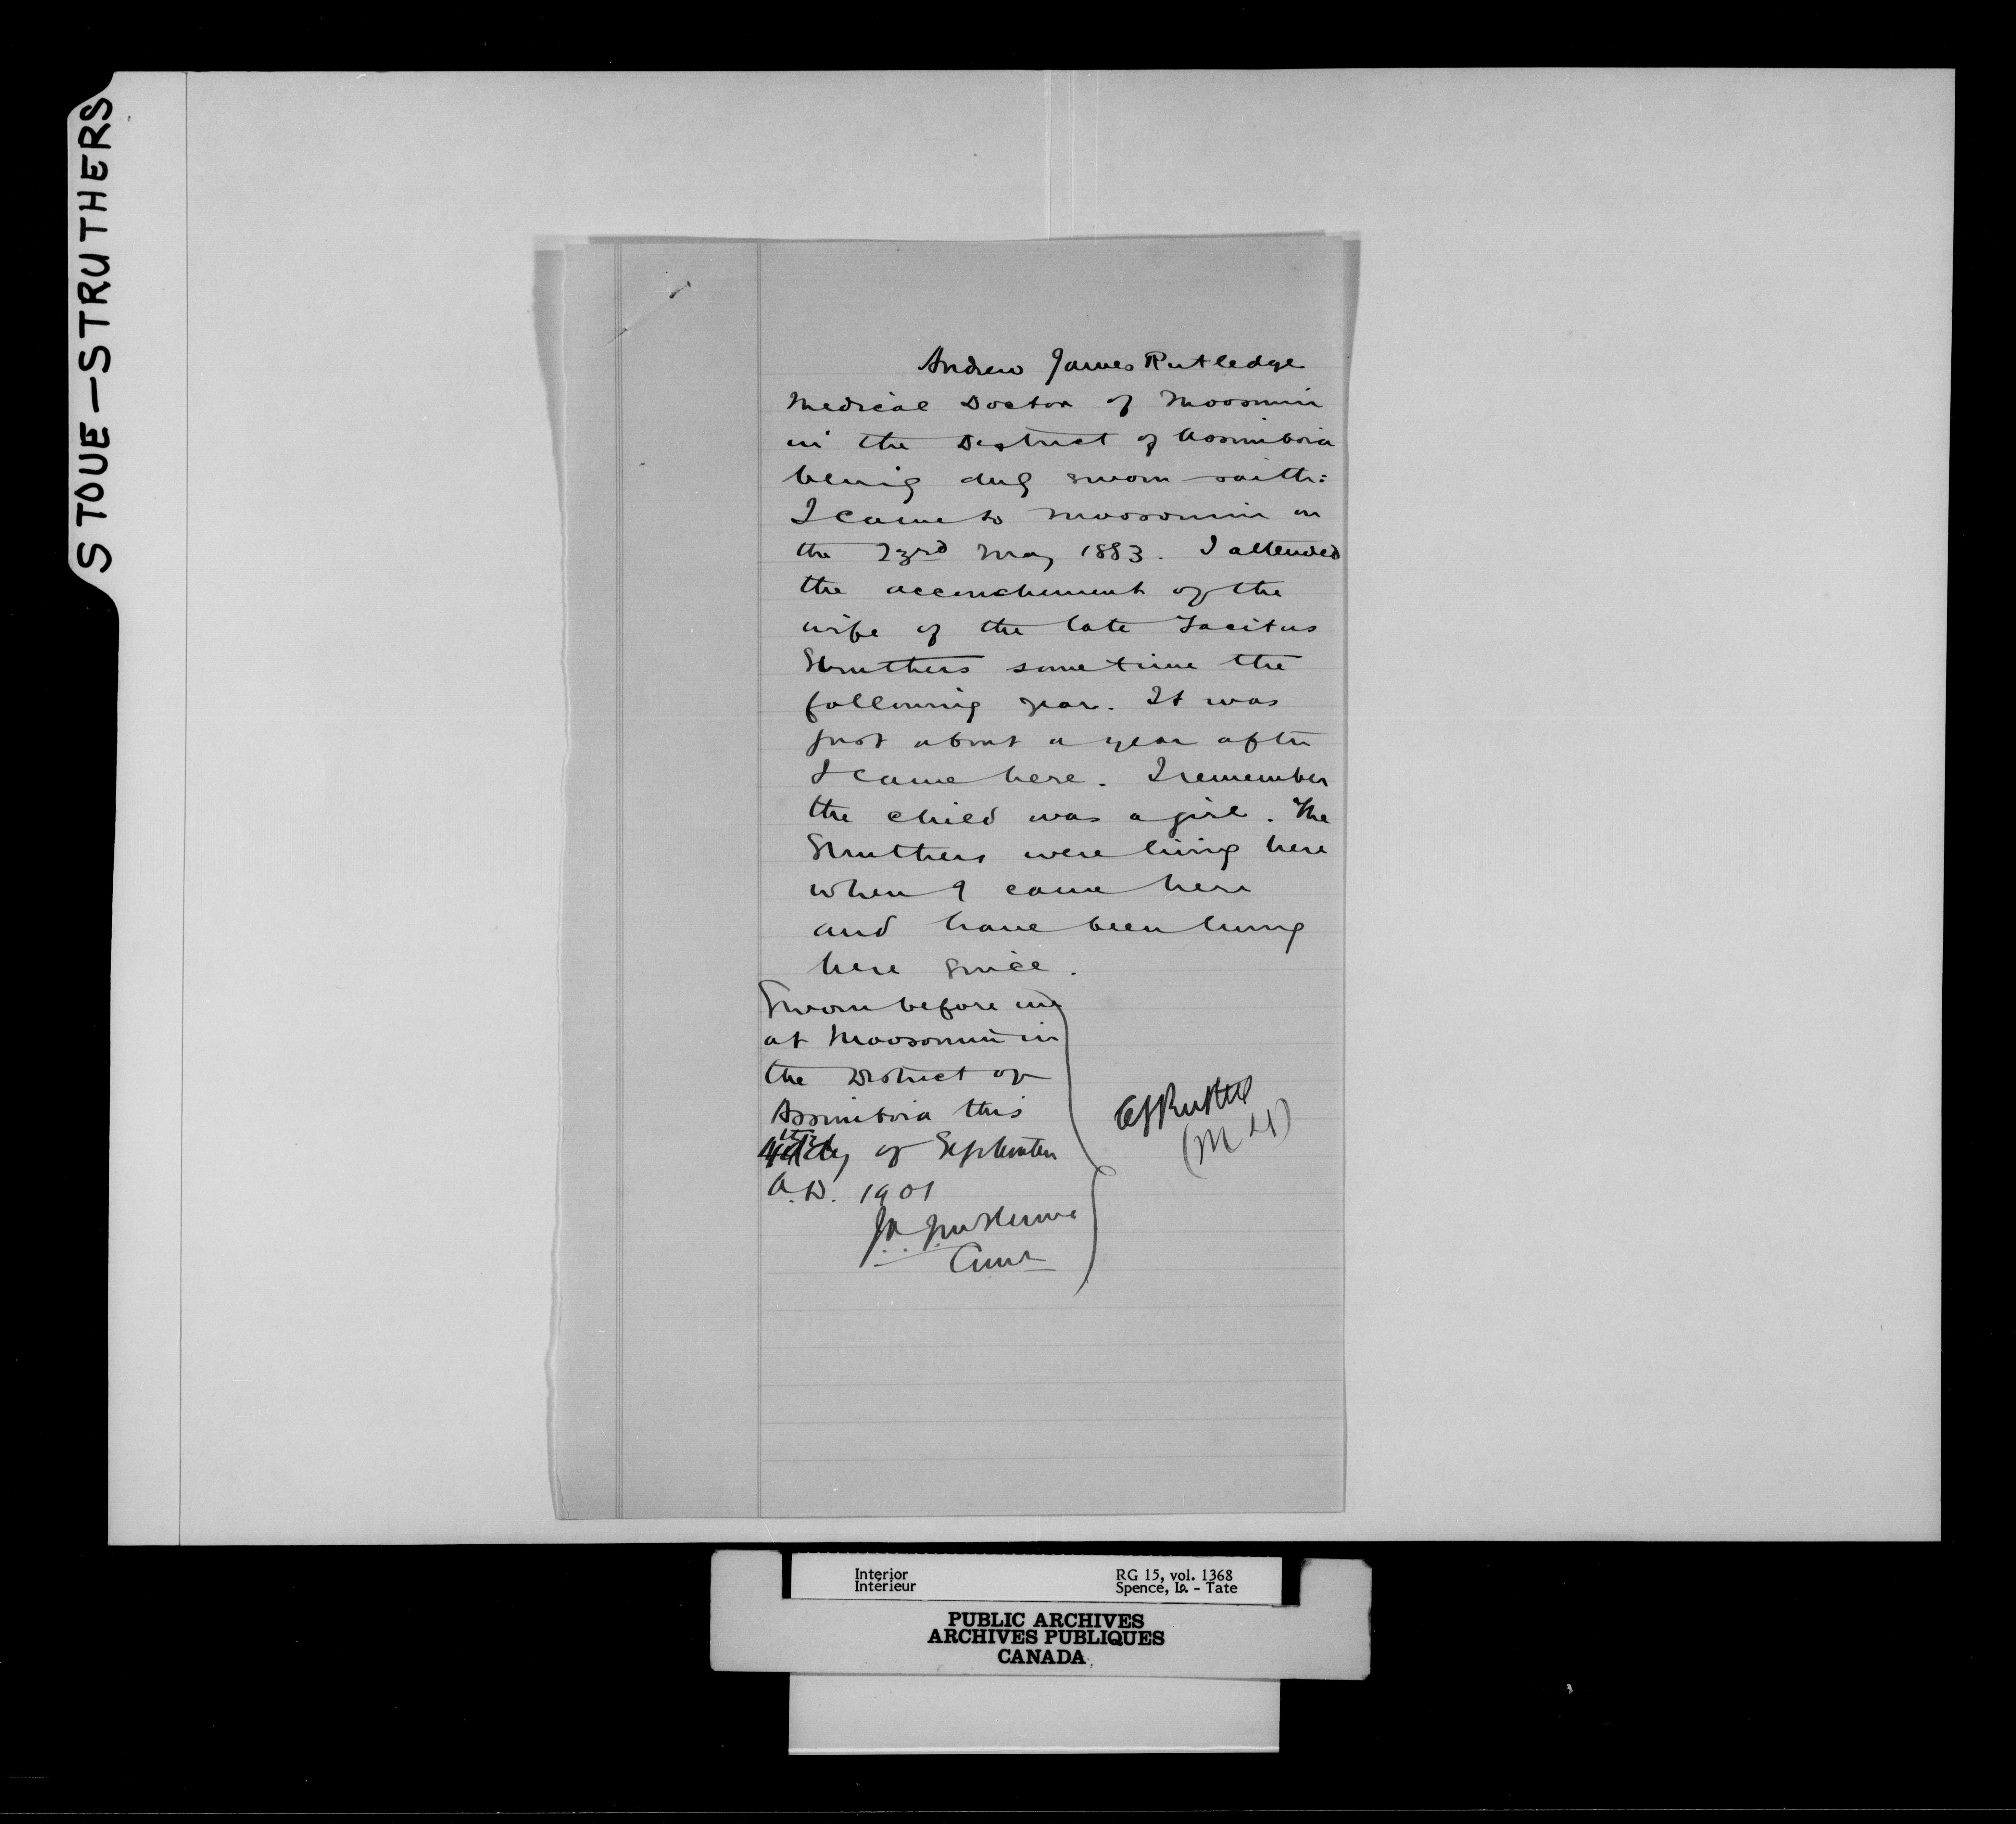 STOUE-STRUTHERS
Andrew James Rutledge
Medical Doctor of Moosomin
in the District of Assiniboia
being duly sworn saith:
I came to Moosomin on
the 23rd May 1883. I attended
the accouchement of the
wife of the late Tacitus
Struthers some time the
following year. It was
just about a year after
I came here. I remember
the child was a girl. The
Struthers were living here
when I came here
and have been living
here since.
Sworn before me
at Moosomin in
the District of
Assiniboia this
day of September
A.D. 1901
(M D)
Interior
Intérieur
RG 15, vol. 1368
Spence, Lo. - Tate
PUBLIC ARCHIVES
ARCHIVES PUBLIQUES
CANADA